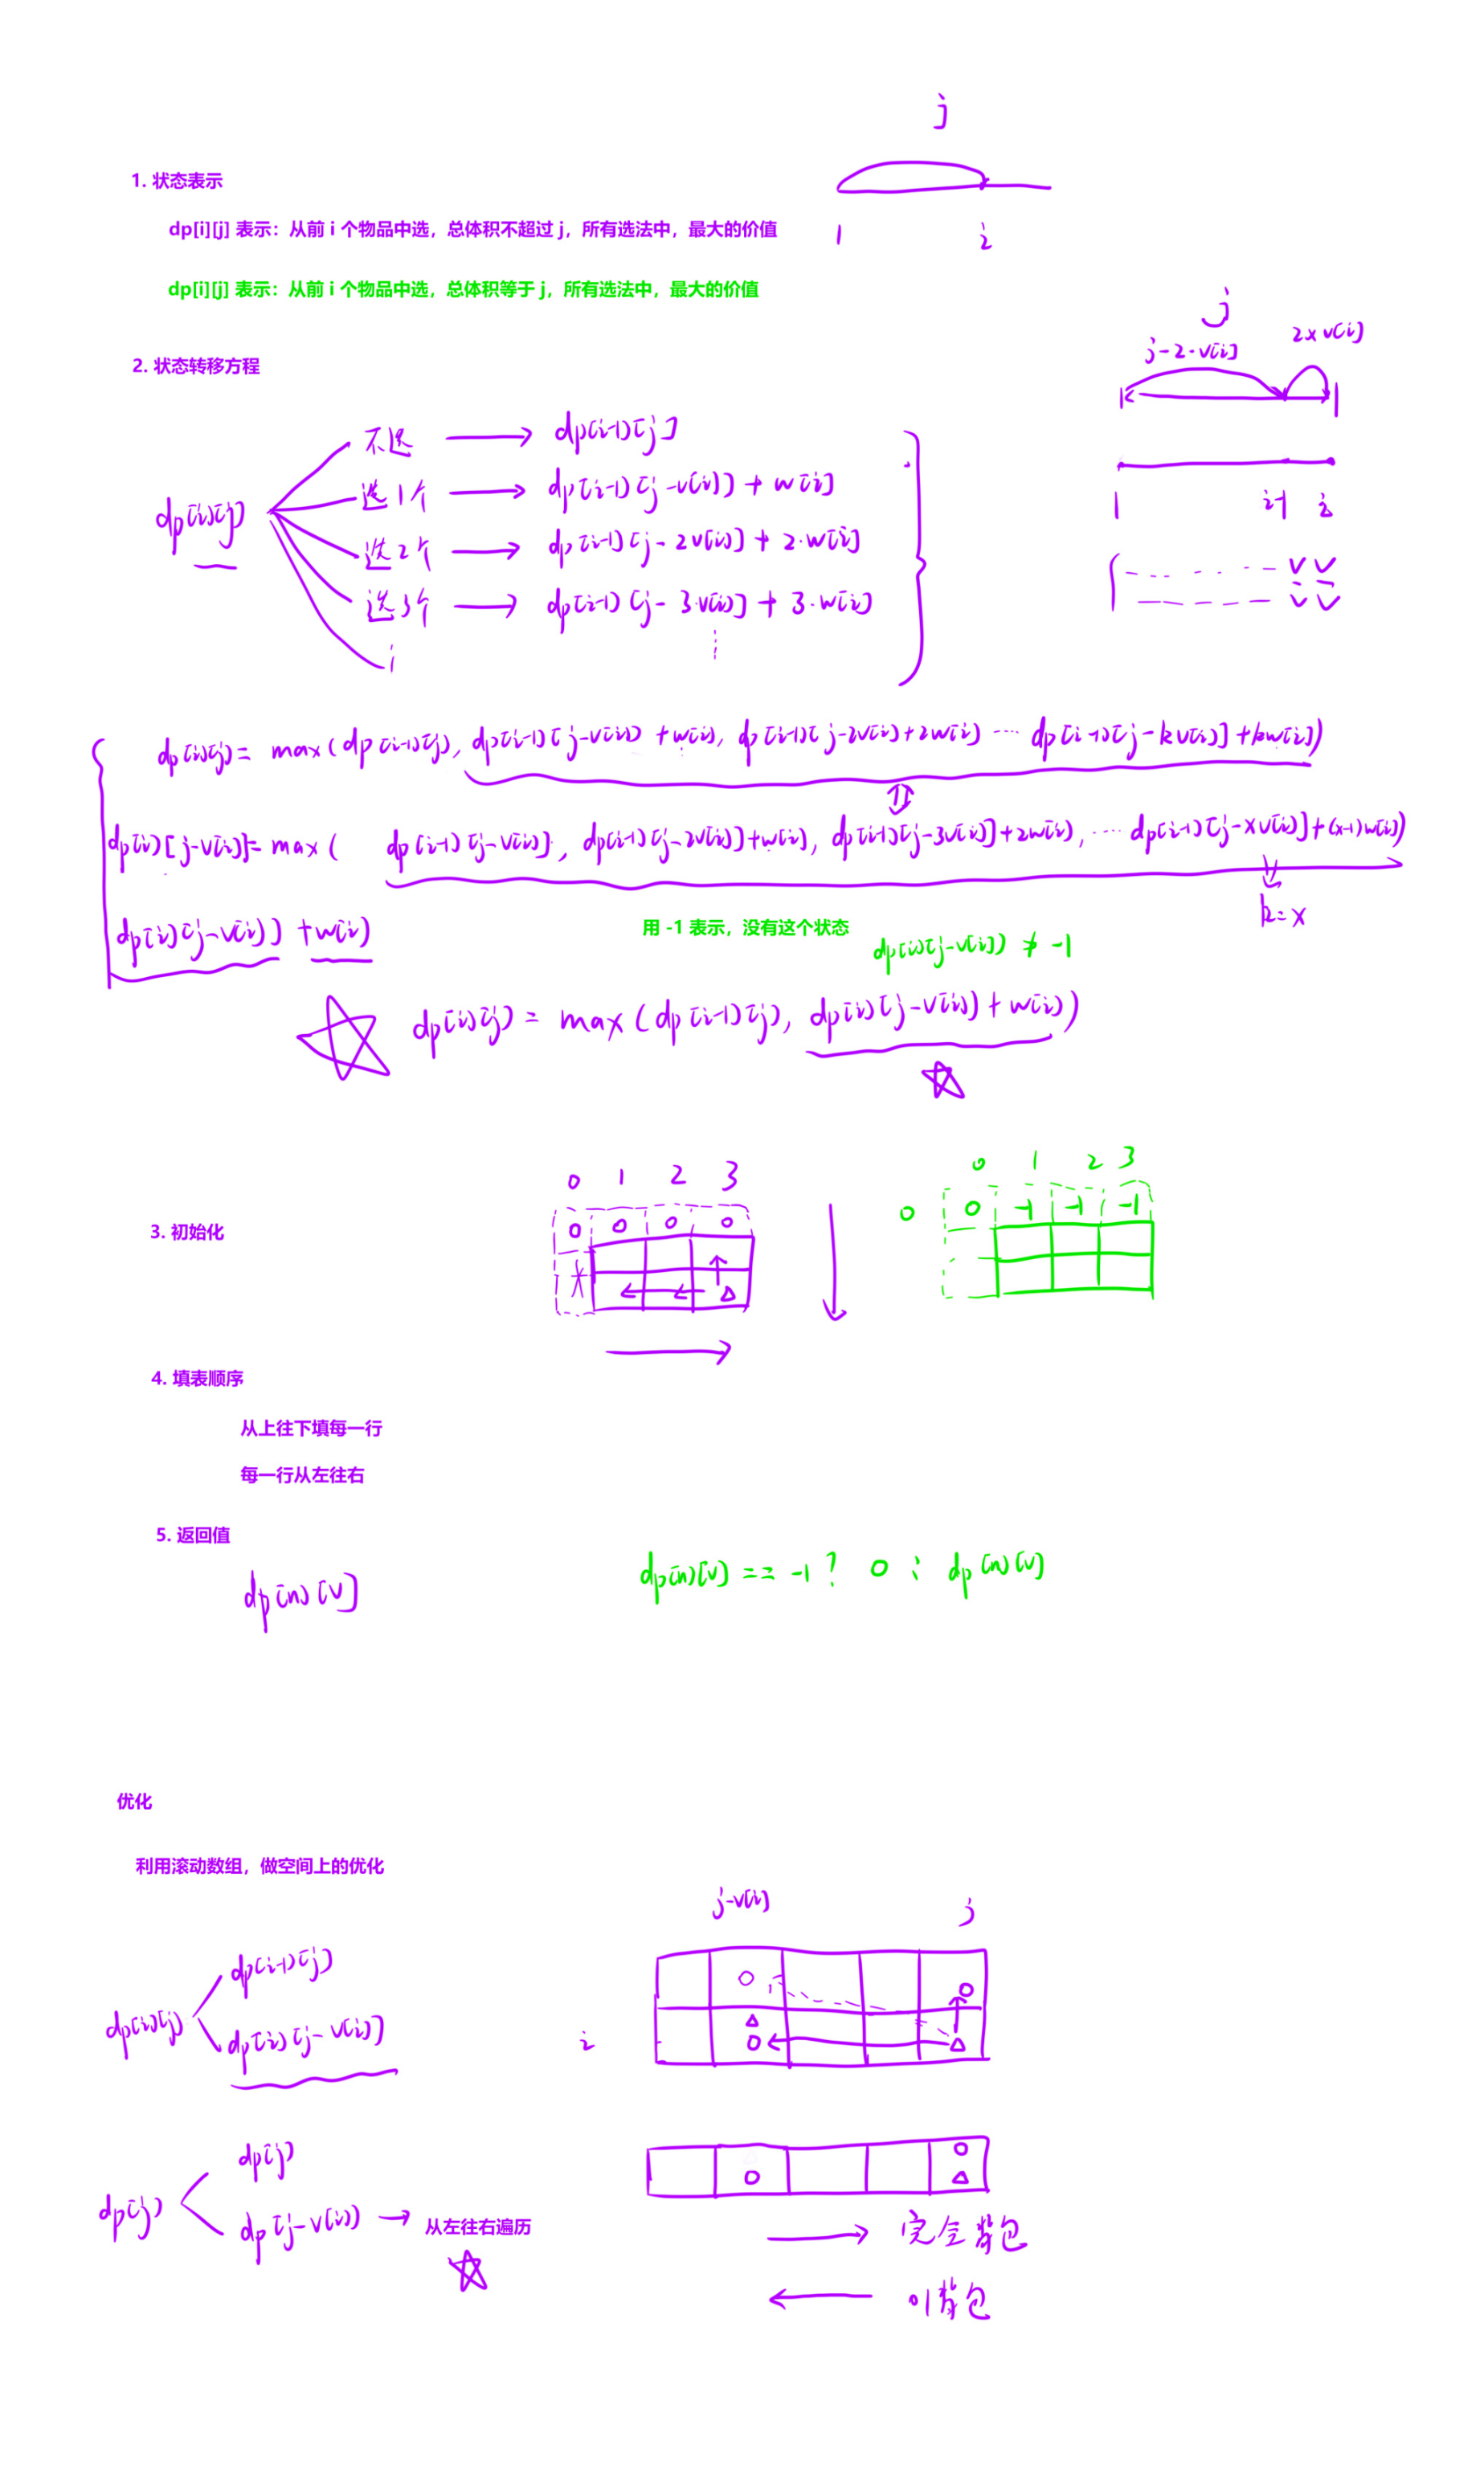 j
1. 状态表示
dp[i][j] 表示：从前 i 个物品中选，总体积不超过 j，所有选法中，最大的价值
1 i
dp[i][j] 表示：从前 i 个物品中选，总体积等于 j，所有选法中，最大的价值
j
j-2·v[i] 2×v[i]
2. 状态转移方程
不选 → dp[i-1][j]
选1个 → dp[i-1][j-v[i]] + w[i]
dp[i][j]
选2个 → dp[i-1][j-2v[i]] + 2·w[i]
选3个 → dp[i-1][j-3·v[i]] + 3·w[i]
1 i-1 i
dp[i][j] = max(dp[i-1][j], dp[i-1][j-v[i]] + w[i], dp[i-1][j-2v[i]+2w[i] ... dp[i-1][j-kv[i]]+kw[i])
dp[i][j-v[i]] = max( dp[i-1][j-v[i]], dp[i-1][j-2v[i]]+w[i], dp[i-1][j-3v[i]]+2w[i], ... dp[i-1][j-xv[i]]+(x-1)w[i])
k=x
dp[i][j-v[i]] + w[i]
用 -1 表示，没有这个状态
dp[i][j-v[i]] ≠ -1
dp[i][j] = max(dp[i-1][j], dp[i][j-v[i]]+w[i])
0 1 2 3
0 1 2 3
3. 初始化
0 0 0 0
0 0 -1 -1 -1
4. 填表顺序
从上往下填每一行
每一行从左往右
5. 返回值
dp[n][V]
dp[n][V] == -1 ? 0 : dp[n][V]
优化
利用滚动数组，做空间上的优化
j-v[i] j
dp[i-1][j]
dp[i][j]
dp[i][j-v[i]]
i
dp[j]
dp[j]
dp[j-v[i]] → 从左往右遍历
→ 完全背包
← 01背包